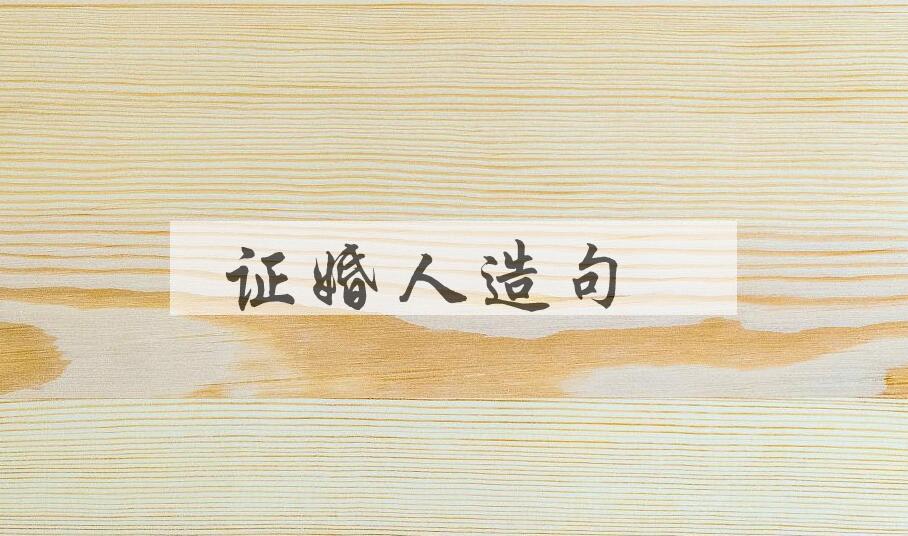 证婚人造句